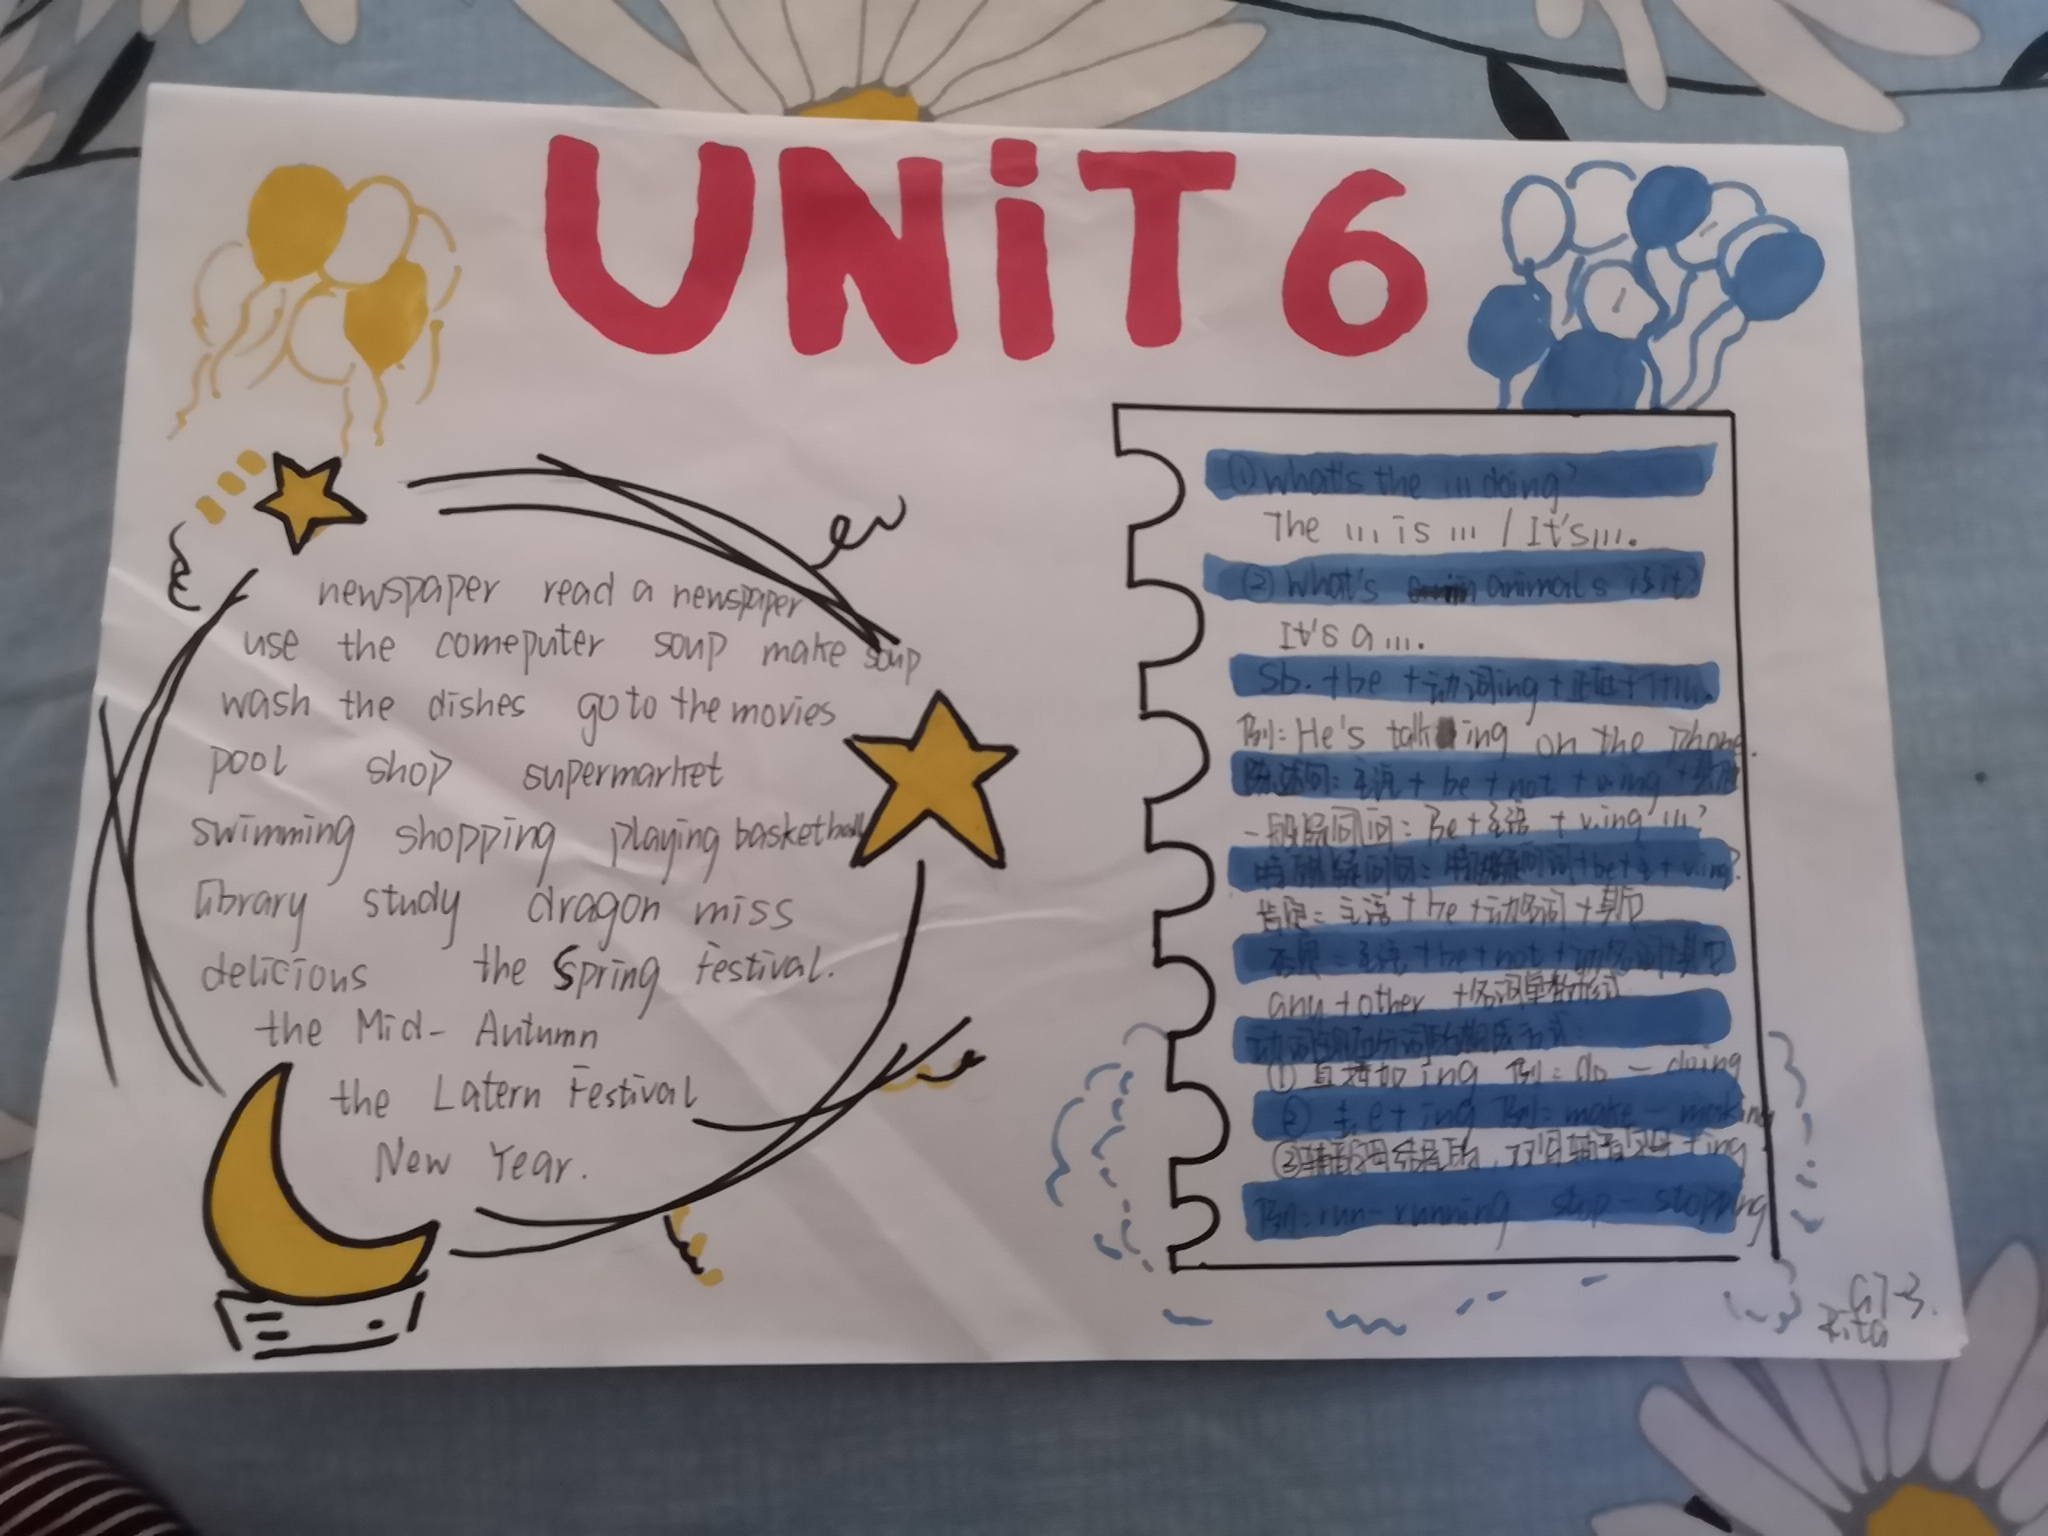 UNiT 6
newspaper read a newspaper
use the comeputer soup make soup
wash the dishes go to the movies
pool shop supermarket
swimming shopping playing basketball
library study dragon miss
delicious the Spring Festival.
the Mid- Autumn
the Latern Festival
New Year.
①What's the ... doing?
The ... is ... / It's....
②What's animals is it?
It's a ....
Sb. +be +动词ing +其他+
例: He's talking on the phone.
主语 + be + not + ving + 其它
一般疑问句: Be+主语 + ving ...?
特殊疑问句: 特殊疑问词+be+主+ving?
肯定: 主语 +be +动名词 +其它
否定: 主语 +be+not +动名词+其它
any +other +名词单数形式
动词现在分词的
① 直接加 ing 例: do - doing
② 去e+ ing 例: make - making
+ing
例: run-running stop - stopping
G7-3.
Rita